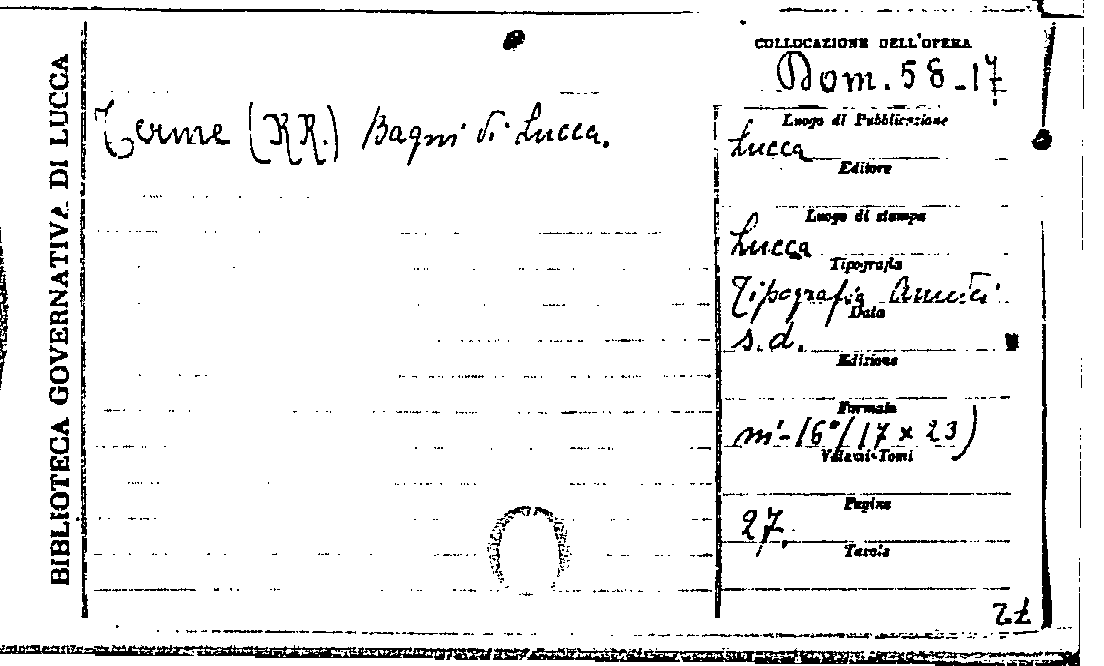 BIBLIOTECA GOVERNATIVA DI LUCCA
Terme (RR.) Bagni di Lucca.
COLLOCAZIONE DELL'OPERA
Dom. 58-17
Luogo di Pubblicazione
Lucca
Editore
Luogo di stampa
Lucca
Tipografia
Tipografia
Data
s.d.
Edizione
Formato
in-16° (17 x 23)
Volumi-Tomi
Pagine
27.
Tavole